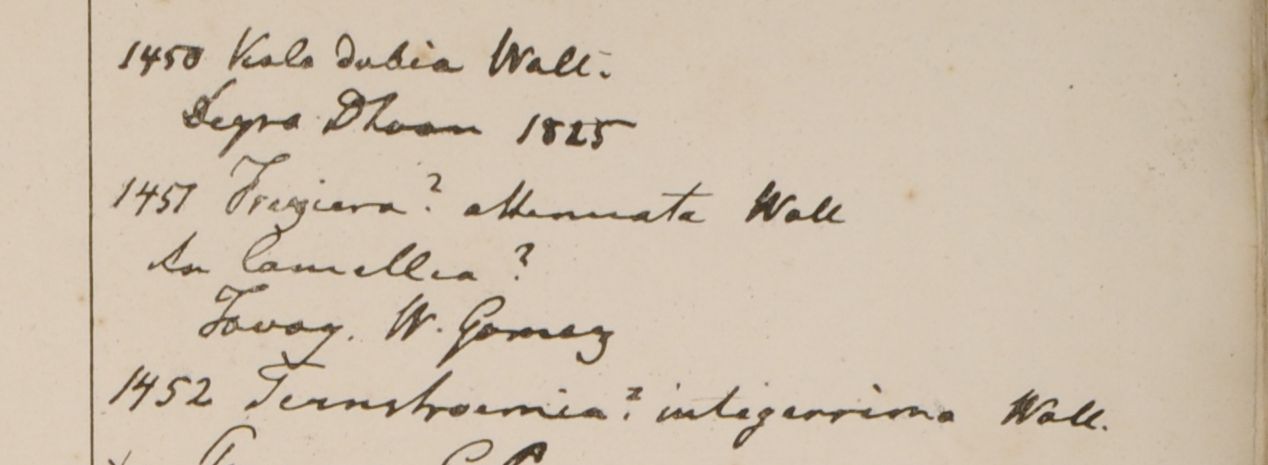 1450 Kalo dubia Wall.
Degra Dhoon 1825
1451 Freziera? attenuata Wall
An Camellia?
Tavoy. W. Gomez
1452 Ternstroemia? integerrima Wall.